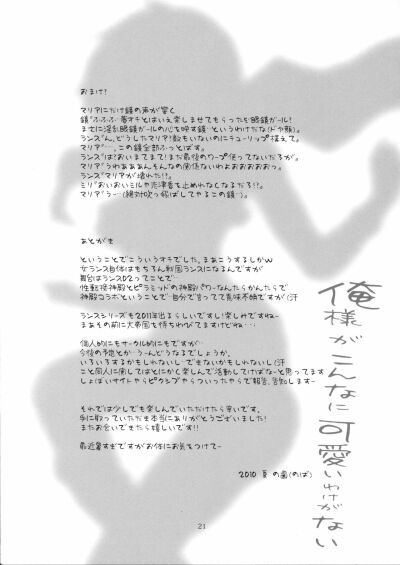 おまけ!
マリアにだけ鏡の声が響く
鏡「ふふふ…夢オチとはいえ楽しませてもらったぞ眼鏡ガール!
まさに淫乱眼鏡ガールの心を映す鏡…というわけだな(ドヤ顔)」
ランス「ん、どうしたマリア!顔もいないのにチューリップ構えて」
マリア「…、この鏡全部ふっとばす」
ランス「は!おいまてまて!まだ最後のワープ使ってないだろが」
マリア「うわぁああんそんなの関係ないわよおおおおおっ」
ランス「マリアが壊れた!!」
ミリ「おいおいミルや志津香を止めれなくなるだろ!!」
マリア「うー…(絶対吹っ飛ばしてやるこの鏡…)」
あとがき
ということでこういうオチでした、まぁこうするしかw
女ランス自体はもちろん戦国ランスになるんですが
舞台はランス02ってことで…
性転換神殿とピラミッドの神殿パワーなんたらかんたらで
神殿コラボということで…自分で言ってて意味不明ですが(汗
ランスシリーズも2011年出るらしいですし楽しみですねー
まぁその前に大帝国を待ちわびてますけどねー…
個人的にもサークル的にもですが…
今後の予定とか…うーんどうなるでしょうか、
いろいろするかもしれないし…できないかもしれないし(汗
こと同人に関してはとにかく楽しんで活動していければなーと思ってます
しょぼいサイトやらピクシブやらついったやらで報告、告知しますー
それでは少しでも楽しんでいただけたら幸いです、
手に取っていただき本当にありがとうございました!
またお会いできたら嬉しいです!!
最近暑すぎですがお体にお気をつけてー
2010 夏 の歯(のば)
俺様がこんなに可愛いわけがない
21